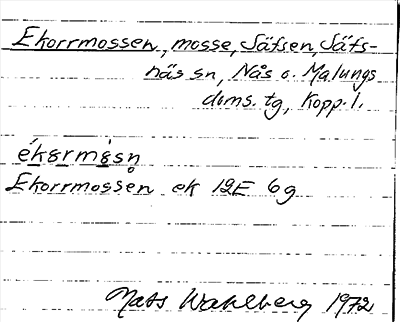 Ekorrmossen, mosse, Säfsen, Säfs-
näs sn, Nås o. Malungs
doms. tg, Kopp. l.
ék8rmòsn̥
Ekorrmossen ek 12E 6g
Mats Wahlberg 1972